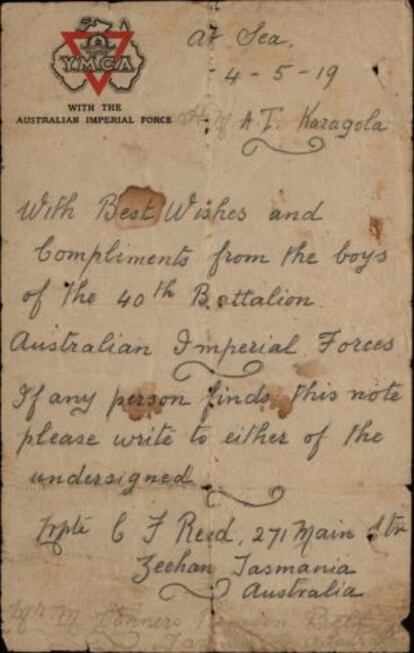 At Sea.
- 4 - 5 - 19
YMCA
WITH THE
AUSTRALIAN IMPERIAL FORCE
A.T. Karagola
With Best Wishes and
Compliments from the boys
of the 40th Battalion
Australian Imperial Forces
If any person finds this note
please write to either of the
undersigned
C F Reid, 271 Main Str
Zeehan Tasmania
Australia
Mr M Connors